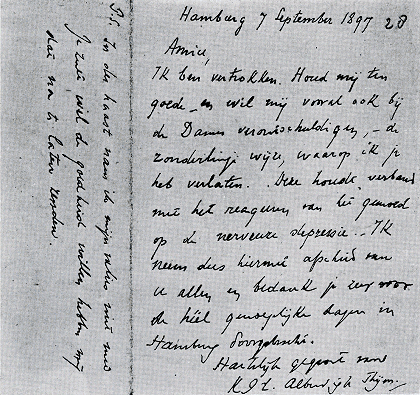 Hamburg 7 September 1897 28
Amice,
Ik ben vertrokken. Houd mij ten
goede en wil mij vooral ook bij
de Dames verontschuldigen, - de
zonderlinge wijze, waarop ik je
heb verlaten. Deze houdt verband
met het reageren van het gemoed
op de nerveuze depressie. - Ik
neem dus hiermee afscheid van
U allen en bedank je zeer voor
de héél genoegelijke dagen in
Hamburg doorgebracht.
Hartelijk gegroet van
K.J.L. Alberdingk Thijm.
P.S. In den haast nam ik mijn valies niet mee
Je zult wel de goedheid willen hebben mij
dat na te laten zenden.